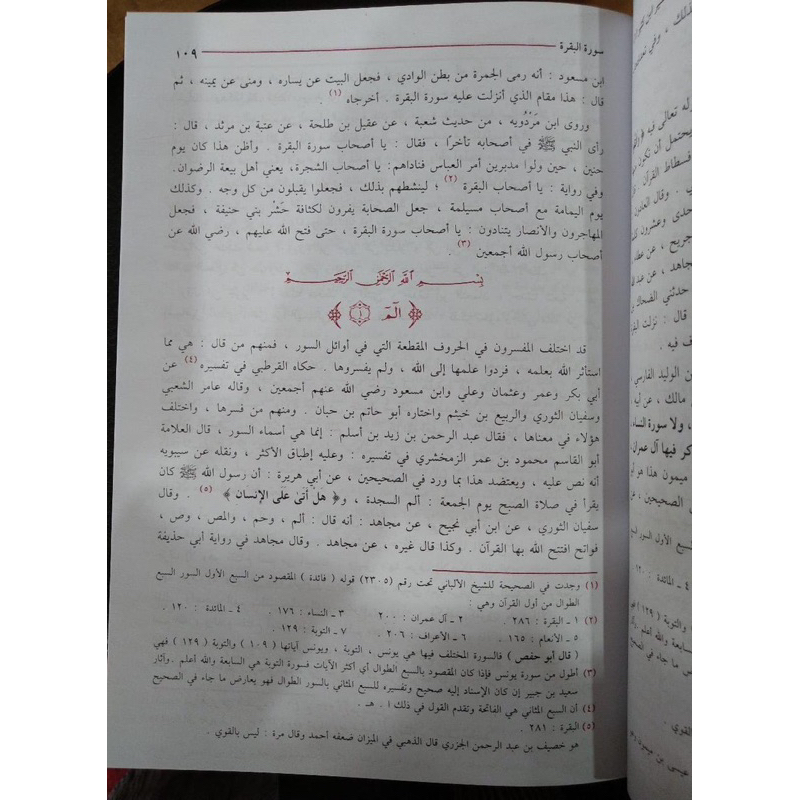 سورة البقرة ١٠٩
ابن مسعود : أنه رمى الجمرة من بطن الوادي ، فجعل البيت عن يساره ، ومنى عن يمينه ، ثم
قال : هذا مقام الذي أنزلت عليه سورة البقرة . أخرجاه (١) .
وروى ابن مَرْدُويه ، من حديث شعبة ، عن عقيل بن طلحة ، عن عتبة بن مرثد ، قال :
رأى النبي ﷺ في أصحابه تأخرًا ، فقال : يا أصحاب سورة البقرة . وأظن هذا كان يوم
حنين ، حين ولوا مدبرين أمر العباس فناداهم: يا أصحاب الشجرة، يعني أهل بيعة الرضوان.
وفي رواية : يا أصحاب البقرة (٢) ؛ لينشطهم بذلك ، فجعلوا يقبلون من كل وجه . وكذلك
يوم اليمامة مع أصحاب مسيلمة ، جعل الصحابة يفرون لكثافة حَشْر بني حنيفة ، فجعل
المهاجرون والأنصار يتنادون : يا أصحاب سورة البقرة ، حتى فتح الله عليهم ، رضي الله عن
أصحاب رسول الله أجمعين (٣) .
بِسْمِ اللَّهِ الرَّحْمَٰنِ الرَّحِيمِ
﴿ الٓمٓ ١ ﴾
قد اختلف المفسرون في الحروف المقطعة التي في أوائل السور ، فمنهم من قال : هي مما
استأثر الله بعلمه ، فردوا علمها إلى الله ، ولم يفسروها . حكاه القرطبي في تفسيره (٤) عن
أبي بكر وعمر وعثمان وعلي وابن مسعود رضي الله عنهم أجمعين ، وقاله عامر الشعبي
وسفيان الثوري والربيع بن خيثم واختاره أبو حاتم بن حبان . ومنهم من فسرها ، واختلف
هؤلاء في معناها ، فقال عبد الرحمن بن زيد بن أسلم : إنما هي أسماء السور ، قال العلامة
أبو القاسم محمود بن عمر الزمخشري في تفسيره : وعليه إطباق الأكثر ، ونقله عن سيبويه
أنه نص عليه ، ويعتضد هذا بما ورد في الصحيحين ، عن أبي هريرة : أن رسول الله ﷺ كان
يقرأ في صلاة الصبح يوم الجمعة : ألم السجدة ، و﴿ هَلْ أَتَىٰ عَلَى الإِنسان ﴾ (٥) . وقال
سفيان الثوري ، عن ابن أبي نجيح ، عن مجاهد : أنه قال : ألم ، وحم ، والمص ، وص ،
فواتح افتتح الله بها القرآن . وكذا قال غيره ، عن مجاهد . وقال مجاهد في رواية أبي حذيفة
(١) وجدت في الصحيحة للشيخ الألباني تحت رقم (٢٣٠٥) قوله ( فائدة ) المقصود من السبع الأول السور السبع
الطوال من أول القرآن وهي :
(٢) ١ ـ البقرة : ٢٨٦ . ٢ ـ آل عمران : ٢٠٠ ٣ ـ النساء : ١٧٦ . ٤ ـ المائدة : ١٢٠ .
٥ ـ الأنعام : ١٦٥ . ٦ ـ الأعراف : ٢٠٦ . ٧ ـ التوبة : ١٢٩ .
( قال أبو حفص ) فالسورة المختلف فيها هي يونس ، التوبة ، ويونس آياتها ( ١٠٩ ) والتوبة ( ١٢٩ ) فهي
(٣) أطول من سورة يونس فإذا كان المقصود بالسبع الطوال أي أكثر الآيات فسورة التوبة هي السابعة والله أعلم . وآثار
سعيد بن جبير إن كان الإسناد إليه صحيح وتفسيره للسبع المثاني بالسور الطوال فهو يعارض ما جاء في الصحيح
(٤) أن السبع المثاني هي الفاتحة وتقدم القول في ذلك ا . هـ .
(٥) البقرة : ٢٨١ .
هو خصيف بن عبد الرحمن الجزري قال الذهبي في الميزان ضعفه أحمد وقال مرة : ليس بالقوي .